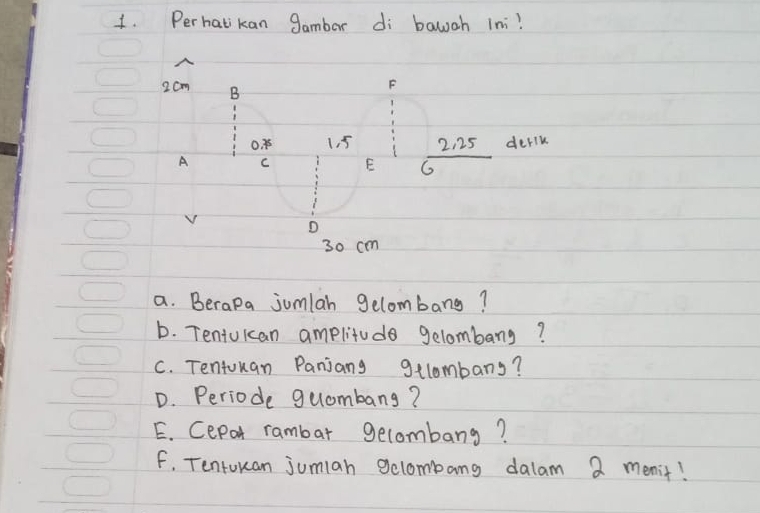 1. Perhatikan gambar di bawah ini!
2 cm
B
F
0.75
1,5
2,25 detik
A
C
E
G
D
30 cm
a. Berapa jumlah gelombang ?
b. Tentukan amplitudo gelombang ?
C. Tentukan Panjang gelombang?
D. Periode gelombang?
E. Cepat rambat gelombang ?
F. Tentukan jumlah gelombang dalam 2 menit!